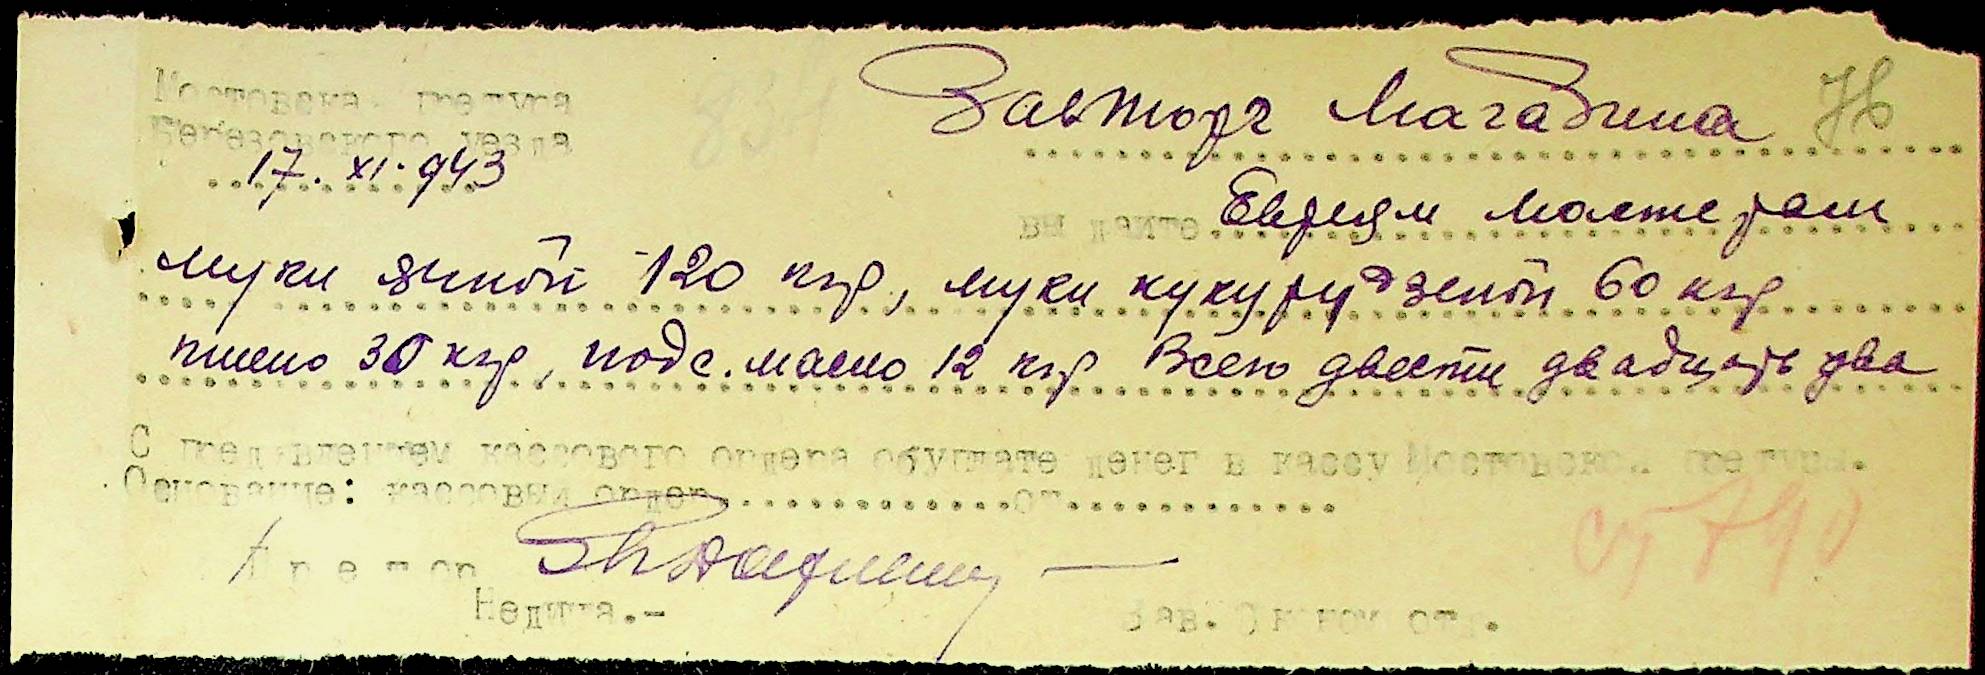 Мостовска претура
Березовского уезда
834
Завторг Магазина
76
17. XI. 943
выдайте Евреям мастерам
муки ячной 120 кгр, муки кукурудзеной 60 кгр
пшено 30 кгр, подс. масло 12 кгр Всего двести двадцать два
С предъвлением кассового ордера обуплате денег в кассу Мостовской претуры.
Основание: кассовый ордер от
Претор
Недина.-
Зав. Эконом отд.